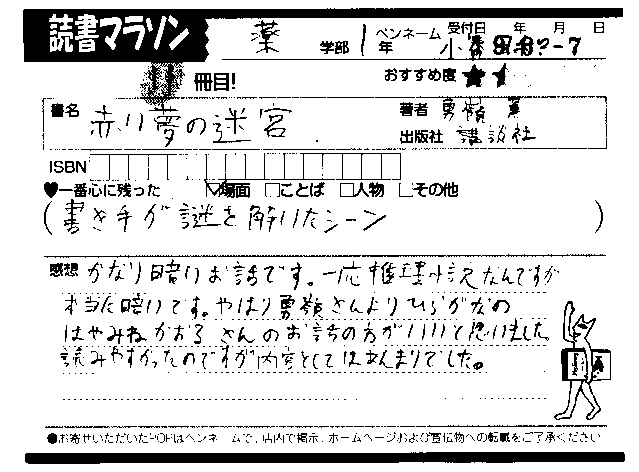 読書マラソン
薬 学部 1年 ペンネーム 小 受付日 年 月 日
11冊目! おすすめ度 ★★
書名 赤い夢の迷宮 著者 勇嶺 薫
出版社 講談社
ISBN
♥一番心に残った ☑場面 □ことば □人物 □その他
(書き手が謎を解いたシーン)
感想 かなり暗いお話です。一応推理小説なんですが
本当に暗いです。やはり勇嶺さんよりひらがなの
はやみねかおるさんのお話の方がいいと思いました
読みやすかったのですが内容としてはあんまりでした。
●お寄せいただいたPOPはペンネームで、店内で掲示、ホームページおよび宣伝物への転載をご了承ください